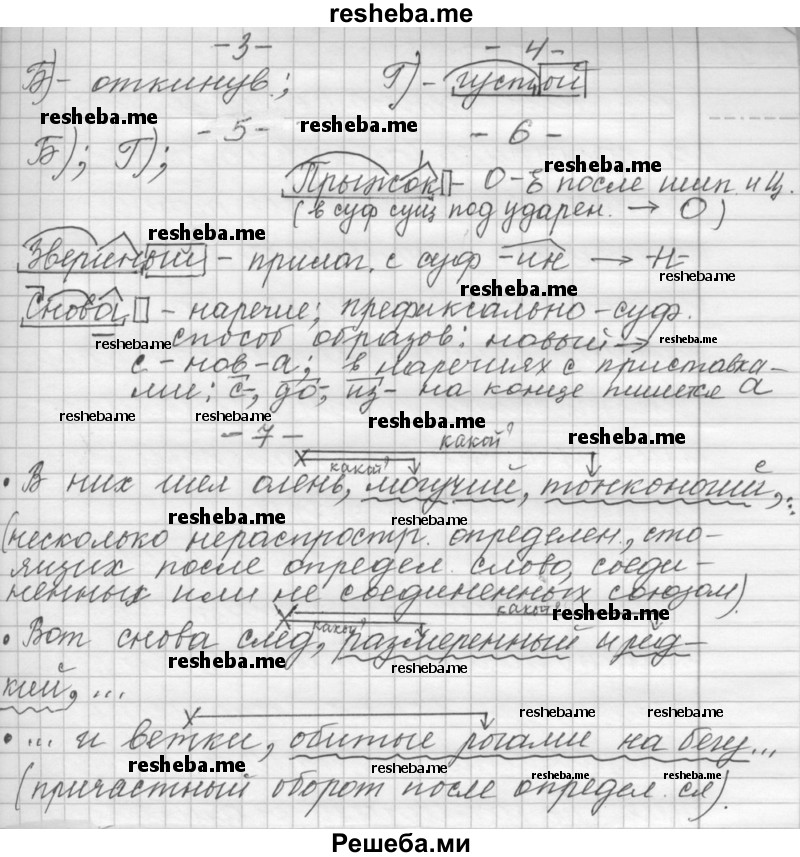 resheba.me
-3-   -4-
Б) - откинув.;   Г) - густой
resheba.me   resheba.me
-5-   -6-
Б); Г);
resheba.me
Прыжок - О-Ё после шип. и Ц.
(в суф сущ под ударен. → О)
resheba.me
Звериный - прилаг. с суф -ин → -Н-
resheba.me
Снова - наречие; префиксально-суф.
resheba.me   способ образов: новый →   resheba.me
с-нов-а; в наречиях с приставка-
ми: с-, до-, из- на конце пишется а
resheba.me   resheba.me   resheba.me
-7-   какой?   resheba.me
какой?
• В них шел олень, могучий, тонконогий,...
resheba.me   resheba.me
(несколько нераспростр. определен., сто-
ящих после определ. слово, соеди-
ненных или не соединенных союзом).
какой?   resheba.me
какой?
• Вот снова след, размеренный и ред-
resheba.me   resheba.me
кий, ...
resheba.me   resheba.me
• ... и ветки, обитые рогами на бегу...
resheba.me   resheba.me   resheba.me   resheba.me
(причастный оборот после определ. сл).
Решеба.ми